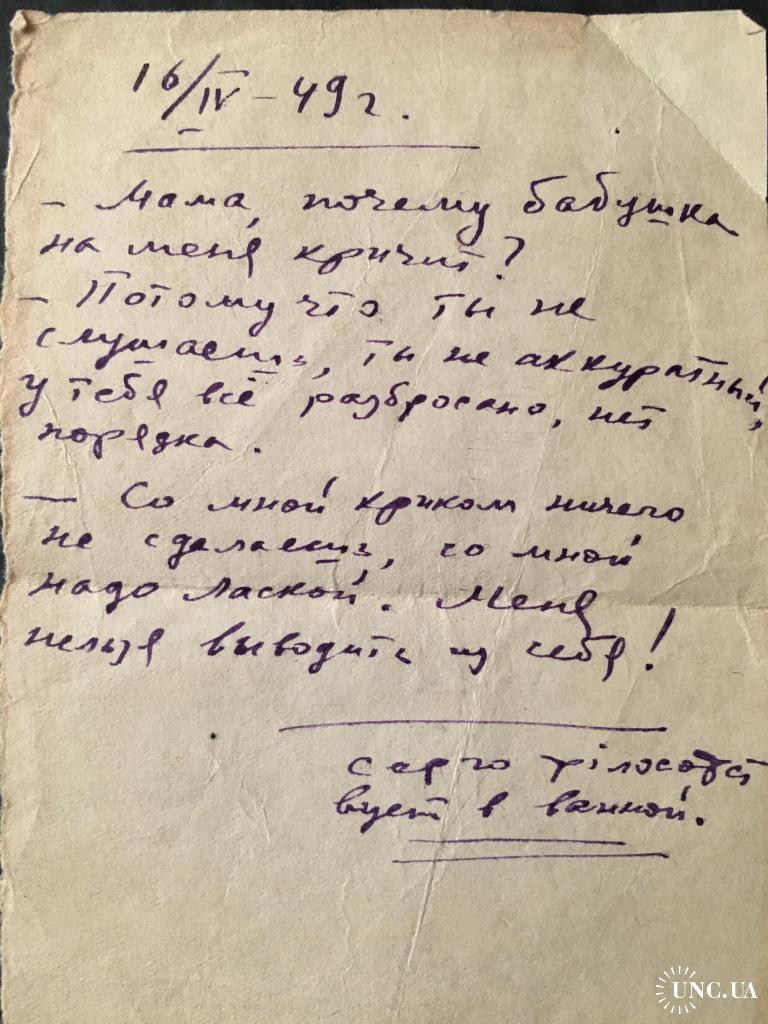 16/IV – 49 г.
– Мама, почему бабушка
на меня кричит?
– Потому что ты не
слушаешь, ты не аккуратный,
у тебя всё разбросано, нет
порядка.
— Со мной криком ничего
не сделаешь, со мной
надо лаской. Меня
нельзя выводить из себя!
Серго філософст
вует в ванной.
UNC.UA